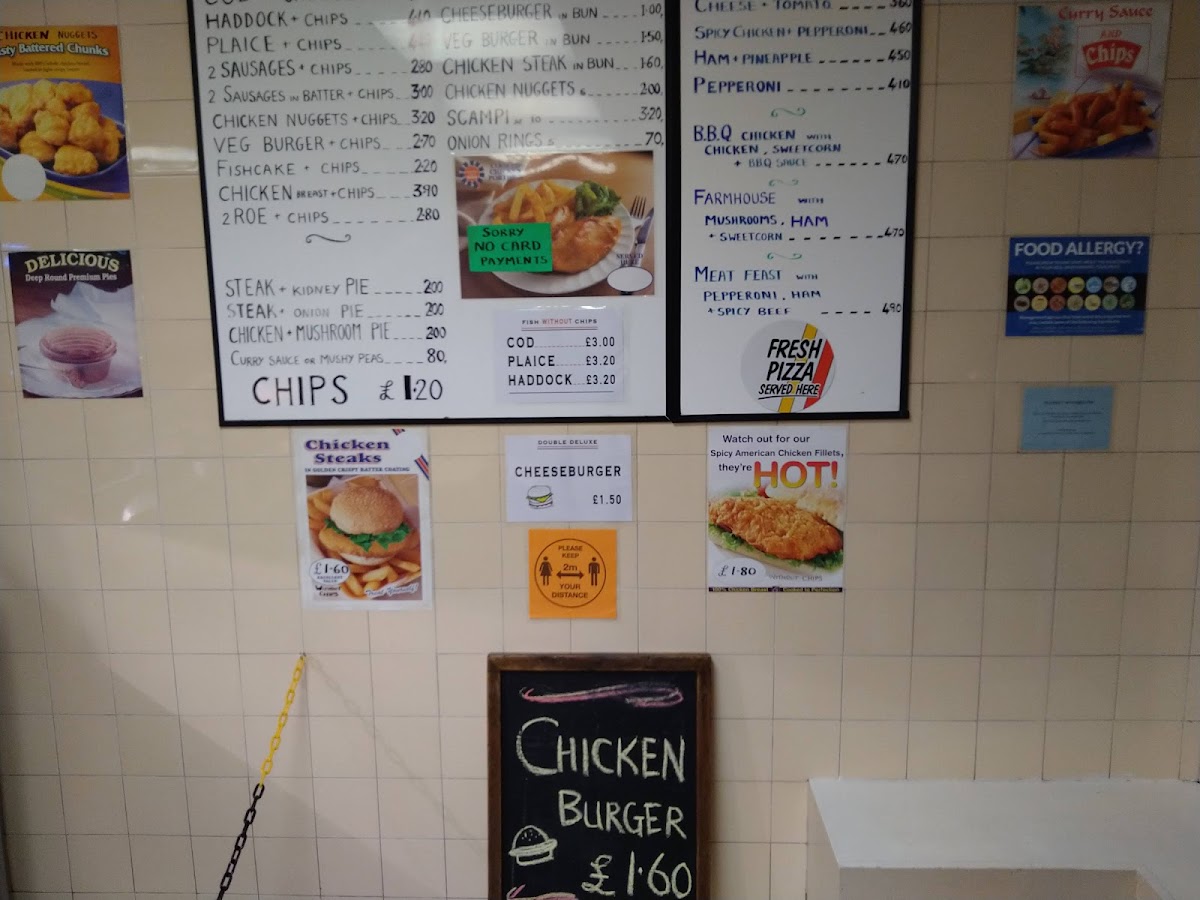 CHICKEN NUGGETS
Tasty Battered Chunks
DELICIOUS
Deep Round Premium Pies
HADDOCK + CHIPS
PLAICE + CHIPS
2 SAUSAGES + CHIPS 280
2 SAUSAGES IN BATTER + CHIPS 300
CHICKEN NUGGETS + CHIPS 320
VEG BURGER + CHIPS 270
FISHCAKE + CHIPS 220
CHICKEN BREAST + CHIPS 390
2 ROE + CHIPS 280
STEAK + KIDNEY PIE 200
STEAK + ONION PIE 200
CHICKEN + MUSHROOM PIE 200
CURRY SAUCE OR MUSHY PEAS 80,
CHIPS £1.20
CHEESEBURGER IN BUN 1.00,
VEG BURGER IN BUN 1.50,
CHICKEN STEAK IN BUN 1.60,
CHICKEN NUGGETS 6 200,
SCAMPI 3.20,
ONION RINGS 70,
SORRY
NO CARD
PAYMENTS
SERVED
HERE
FISH WITHOUT CHIPS
COD £3.00
PLAICE £3.20
HADDOCK £3.20
CHEESE + TOMATO 360
SPICY CHICKEN + PEPPERONI 460
HAM + PINEAPPLE 450
PEPPERONI 410
B.B.Q CHICKEN WITH
CHICKEN, SWEETCORN
+ BBQ SAUCE 470
FARMHOUSE WITH
MUSHROOMS, HAM
+ SWEETCORN 470
MEAT FEAST WITH
PEPPERONI, HAM
+ SPICY BEEF 490
FRESH
PIZZA
SERVED HERE
Curry Sauce
AND
Chips
FOOD ALLERGY?
Chicken
Steaks
IN GOLDEN CRISPY BATTER COATING
£1.60
DOUBLE DELUXE
CHEESEBURGER
£1.50
PLEASE
KEEP
2m
YOUR
DISTANCE
Watch out for our
Spicy American Chicken Fillets,
they're HOT!
£1.80
WITHOUT CHIPS
100% Chicken Breast Cooked to Perfection
CHICKEN
BURGER
£1.60